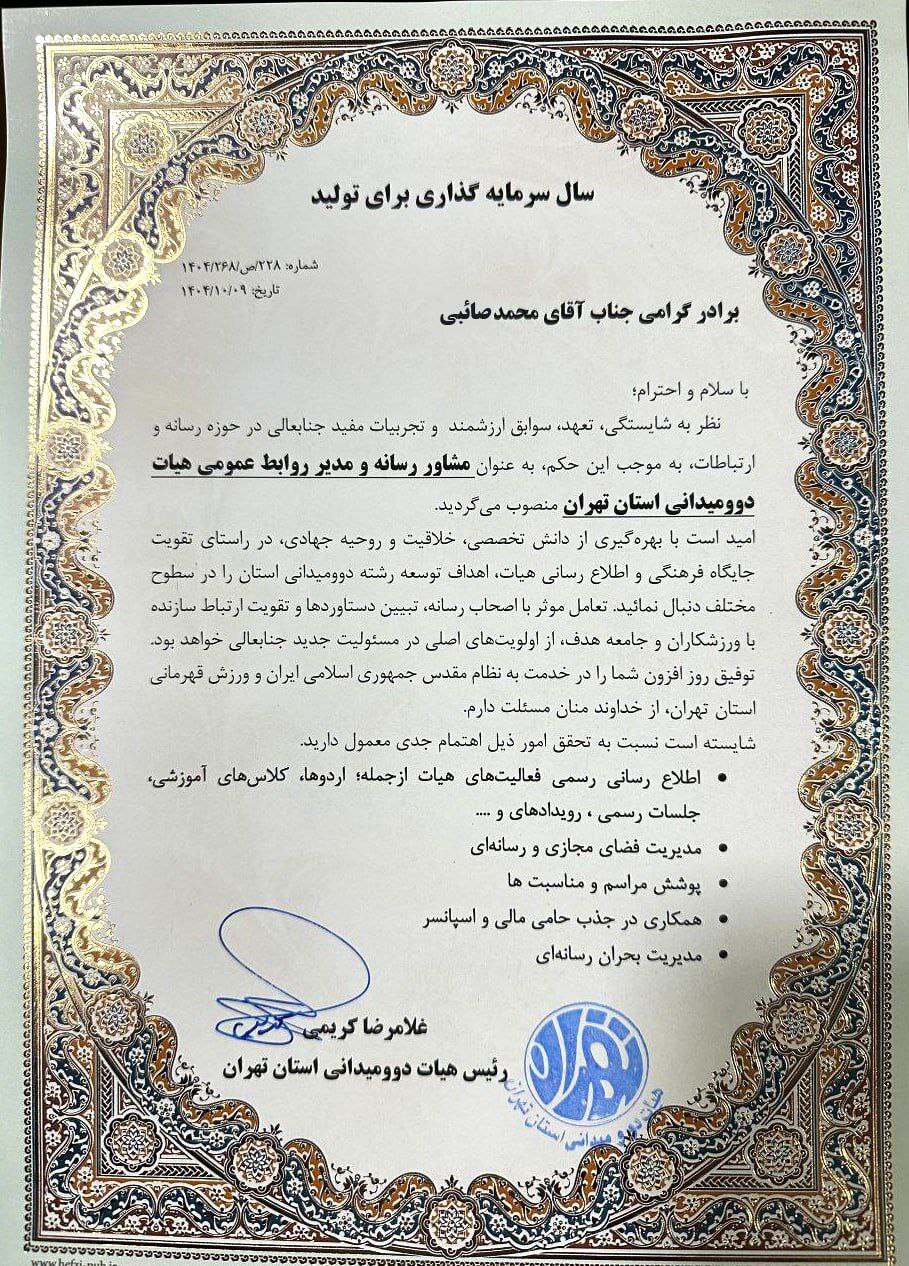 سال سرمایه گذاری برای تولید
شماره: ۲۲۸/ص/۱۴۰۴/۲۶۸
تاریخ: ۱۴۰۴/۱۰/۰۹
برادر گرامی جناب آقای محمدصائبی
با سلام و احترام؛
نظر به شایستگی، تعهد، سوابق ارزشمند و تجربیات مفید جنابعالی در حوزه رسانه و
ارتباطات، به موجب این حکم، به عنوان مشاور رسانه و مدیر روابط عمومی هیات
دوومیدانی استان تهران منصوب می‌گردید.
امید است با بهره‌گیری از دانش تخصصی، خلاقیت و روحیه جهادی، در راستای تقویت
جایگاه فرهنگی و اطلاع رسانی هیات، اهداف توسعه رشته دوومیدانی استان را در سطوح
مختلف دنبال نمائید. تعامل موثر با اصحاب رسانه، تبیین دستاوردها و تقویت ارتباط سازنده
با ورزشکاران و جامعه هدف، از اولویت‌های اصلی در مسئولیت جدید جنابعالی خواهد بود.
توفیق روز افزون شما را در خدمت به نظام مقدس جمهوری اسلامی ایران و ورزش قهرمانی
استان تهران، از خداوند منان مسئلت دارم.
شایسته است نسبت به تحقق امور ذیل اهتمام جدی معمول دارید.
• اطلاع رسانی رسمی فعالیت‌های هیات ازجمله؛ اردوها، کلاس‌های آموزشی،
جلسات رسمی ، رویدادهای و ....
• مدیریت فضای مجازی و رسانه‌ای
• پوشش مراسم و مناسبت ها
• همکاری در جذب حامی مالی و اسپانسر
• مدیریت بحران رسانه‌ای
غلامرضا کریمی
رئیس هیات دوومیدانی استان تهران
تهران
هیات دو و میدانی استان تهران